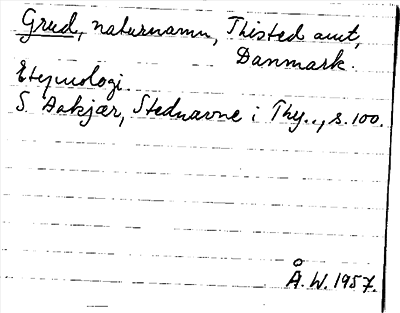 Grud, naturnamn, Thisted amt,
Danmark.
Etymologi.
S. Aakjær, Stednavne i Thy.., s. 100.
Å. W. 1957.